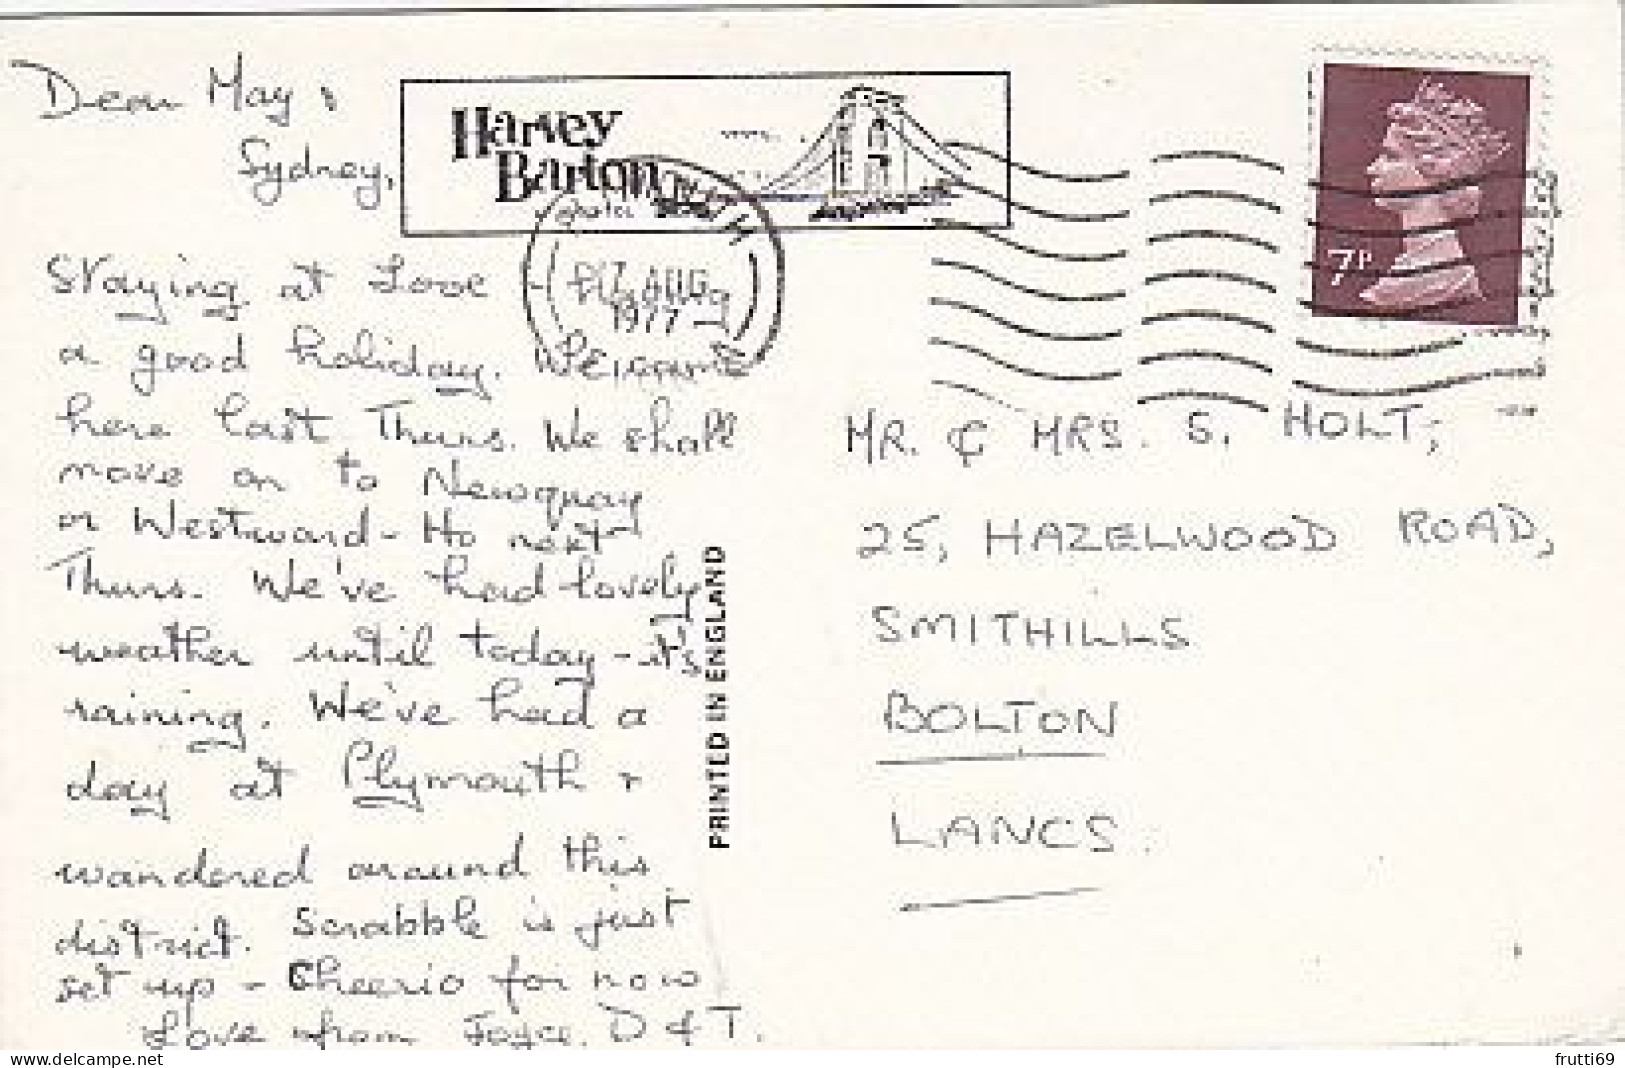 Dear May &
Sydney,
Staying at Looe -
a good holiday. We came
here last Thurs. We shall
move on to Newquay
or Westward-Ho next
Thurs. We've had lovely
weather until today - it's
raining. We've had a
day at Plymouth &
wandered around this
district. Scrabble is just
set up - Cheerio for now
Love from Joyce, D & T.
Harvey
Barton
AUG
1977
7P
PRINTED IN ENGLAND
MR. & MRS. S. HOLT,
25, HAZELWOOD ROAD,
SMITHILLS
BOLTON
LANCS.
delcampe.net
frutti69